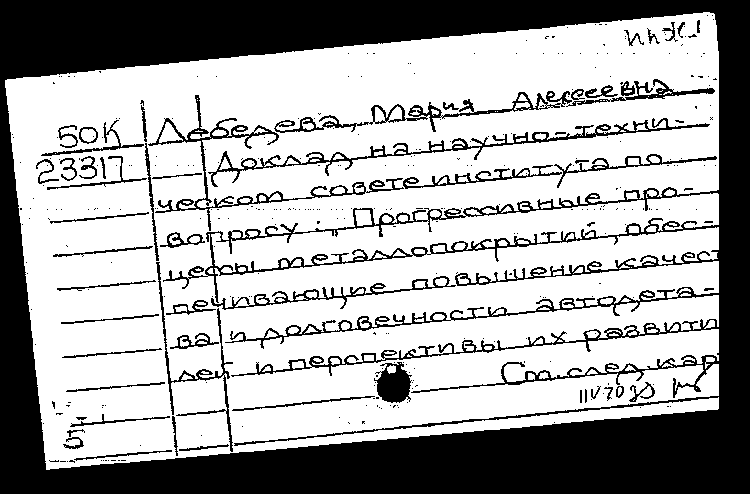 50К Лебедева, Мария Алексеевна
23317 Доклад на научно-техни-
ческом совете института по
вопросу: „Прогрессивные про-
цессы металлопокрытий, обес-
печивающие повышение качест
ва и долговечности автодета-
лей и перспективы их развити
См. след. кар